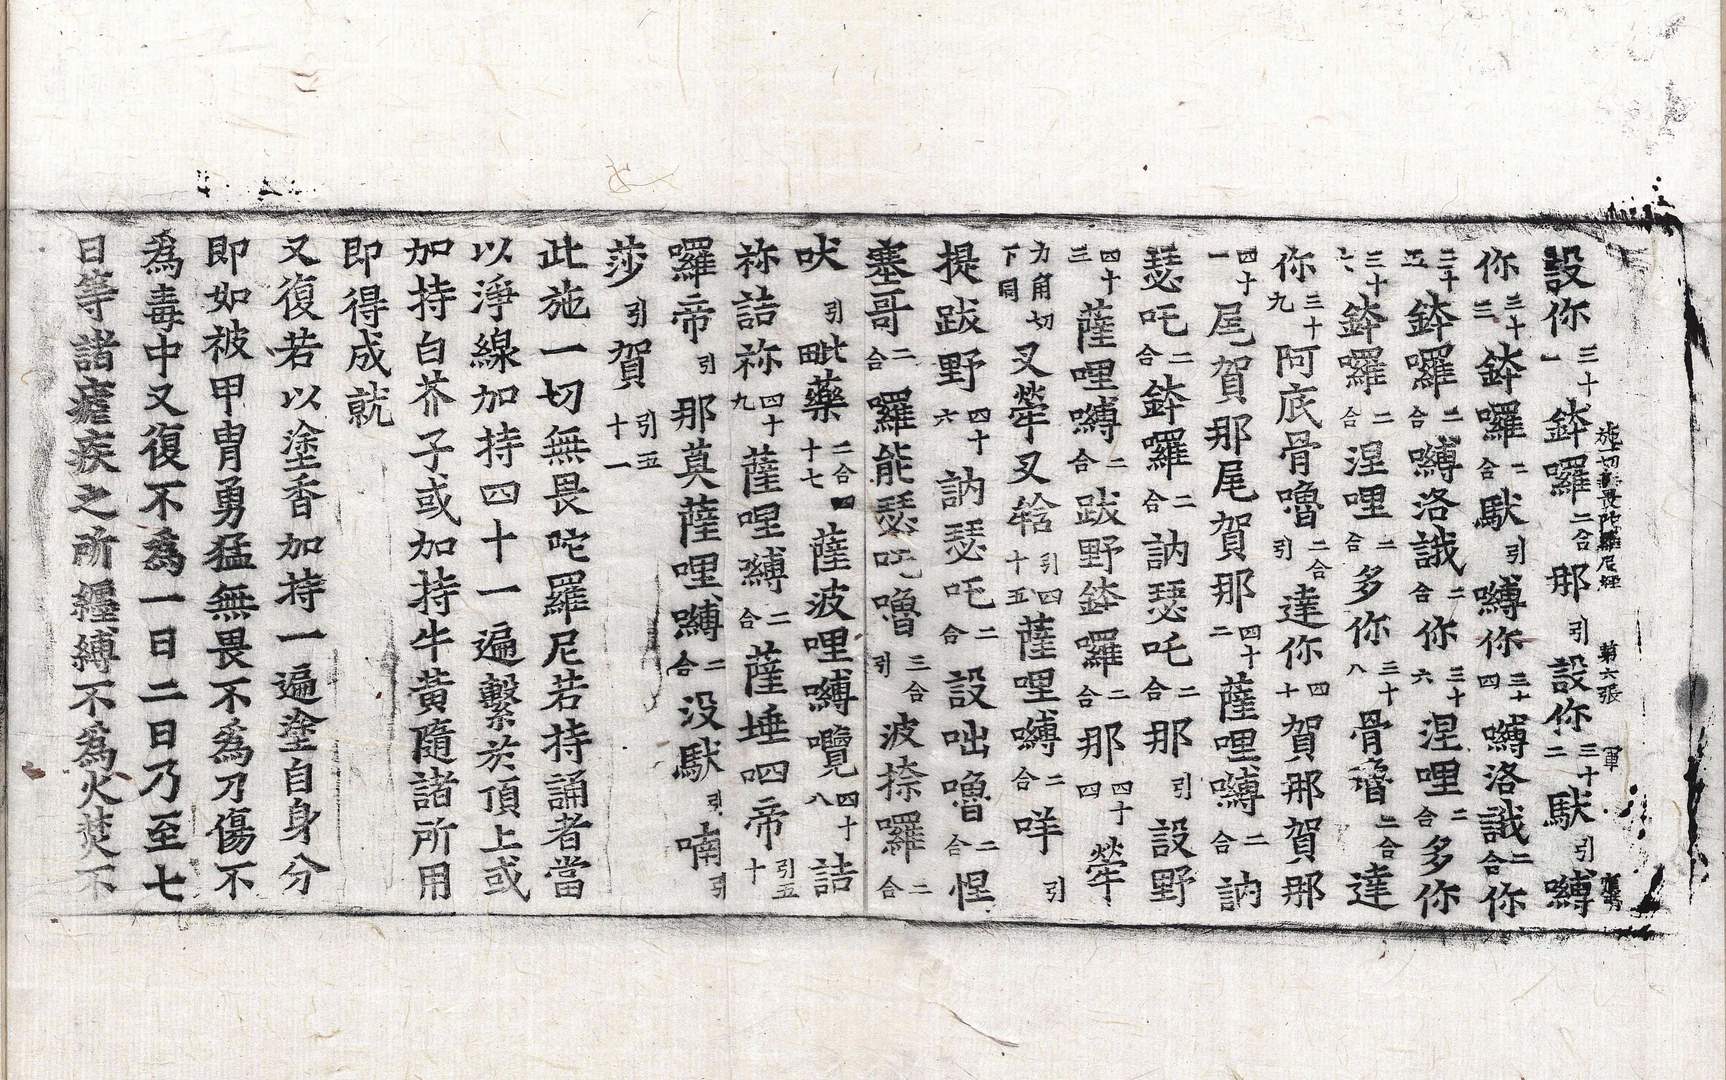 施一切無畏陀羅尼經 第六張 軍
設你三十一鉢囉二合那引設你三十二馱引嚩
你三十三鉢囉二合馱引嚩你三十四嚩洛誐二合你
三十五鉢囉二合嚩洛誐二合你三十六涅哩二合多你
三十七鉢囉二合涅哩二合多你三十八骨嚕二合達
你三十九阿底骨嚕二合引達你四十賀那賀那
四十一尾賀那尾賀那四十二薩哩嚩二合訥
瑟吒二合鉢囉二合訥瑟吒二合那引設野
四十三薩哩嚩二合跋野鉢囉二合那四十四犖
力角切下同叉犖叉㸿引四十五薩哩嚩二合咩引
提跋野四十六訥瑟吒二合設咄嚕二合悍
塞哥二合囉能瑟吒嚕三合引波捺囉二合
吠引毗藥二合四十七薩波哩嚩囕四十八詰
祢詰祢四十九薩哩嚩二合薩埵呬帝引五十
囉帝引那莫薩哩嚩二合没馱引喃引
莎引賀引五十一
此施一切無畏陀羅尼若持誦者當
以淨線加持四十一遍繫於頂上或
加持白芥子或加持牛黃隨諸所用
即得成就
又復若以塗香加持一遍塗自身分
即如被甲冑勇猛無畏不為刀傷不
為毒中又復不為一日二日乃至七
日等諸瘧疾之所纏縛不為火焚不